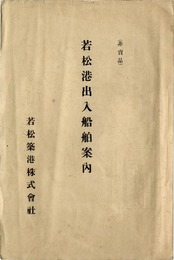 (非賣品)
若松港出入船舶案內
若松築港株式會社